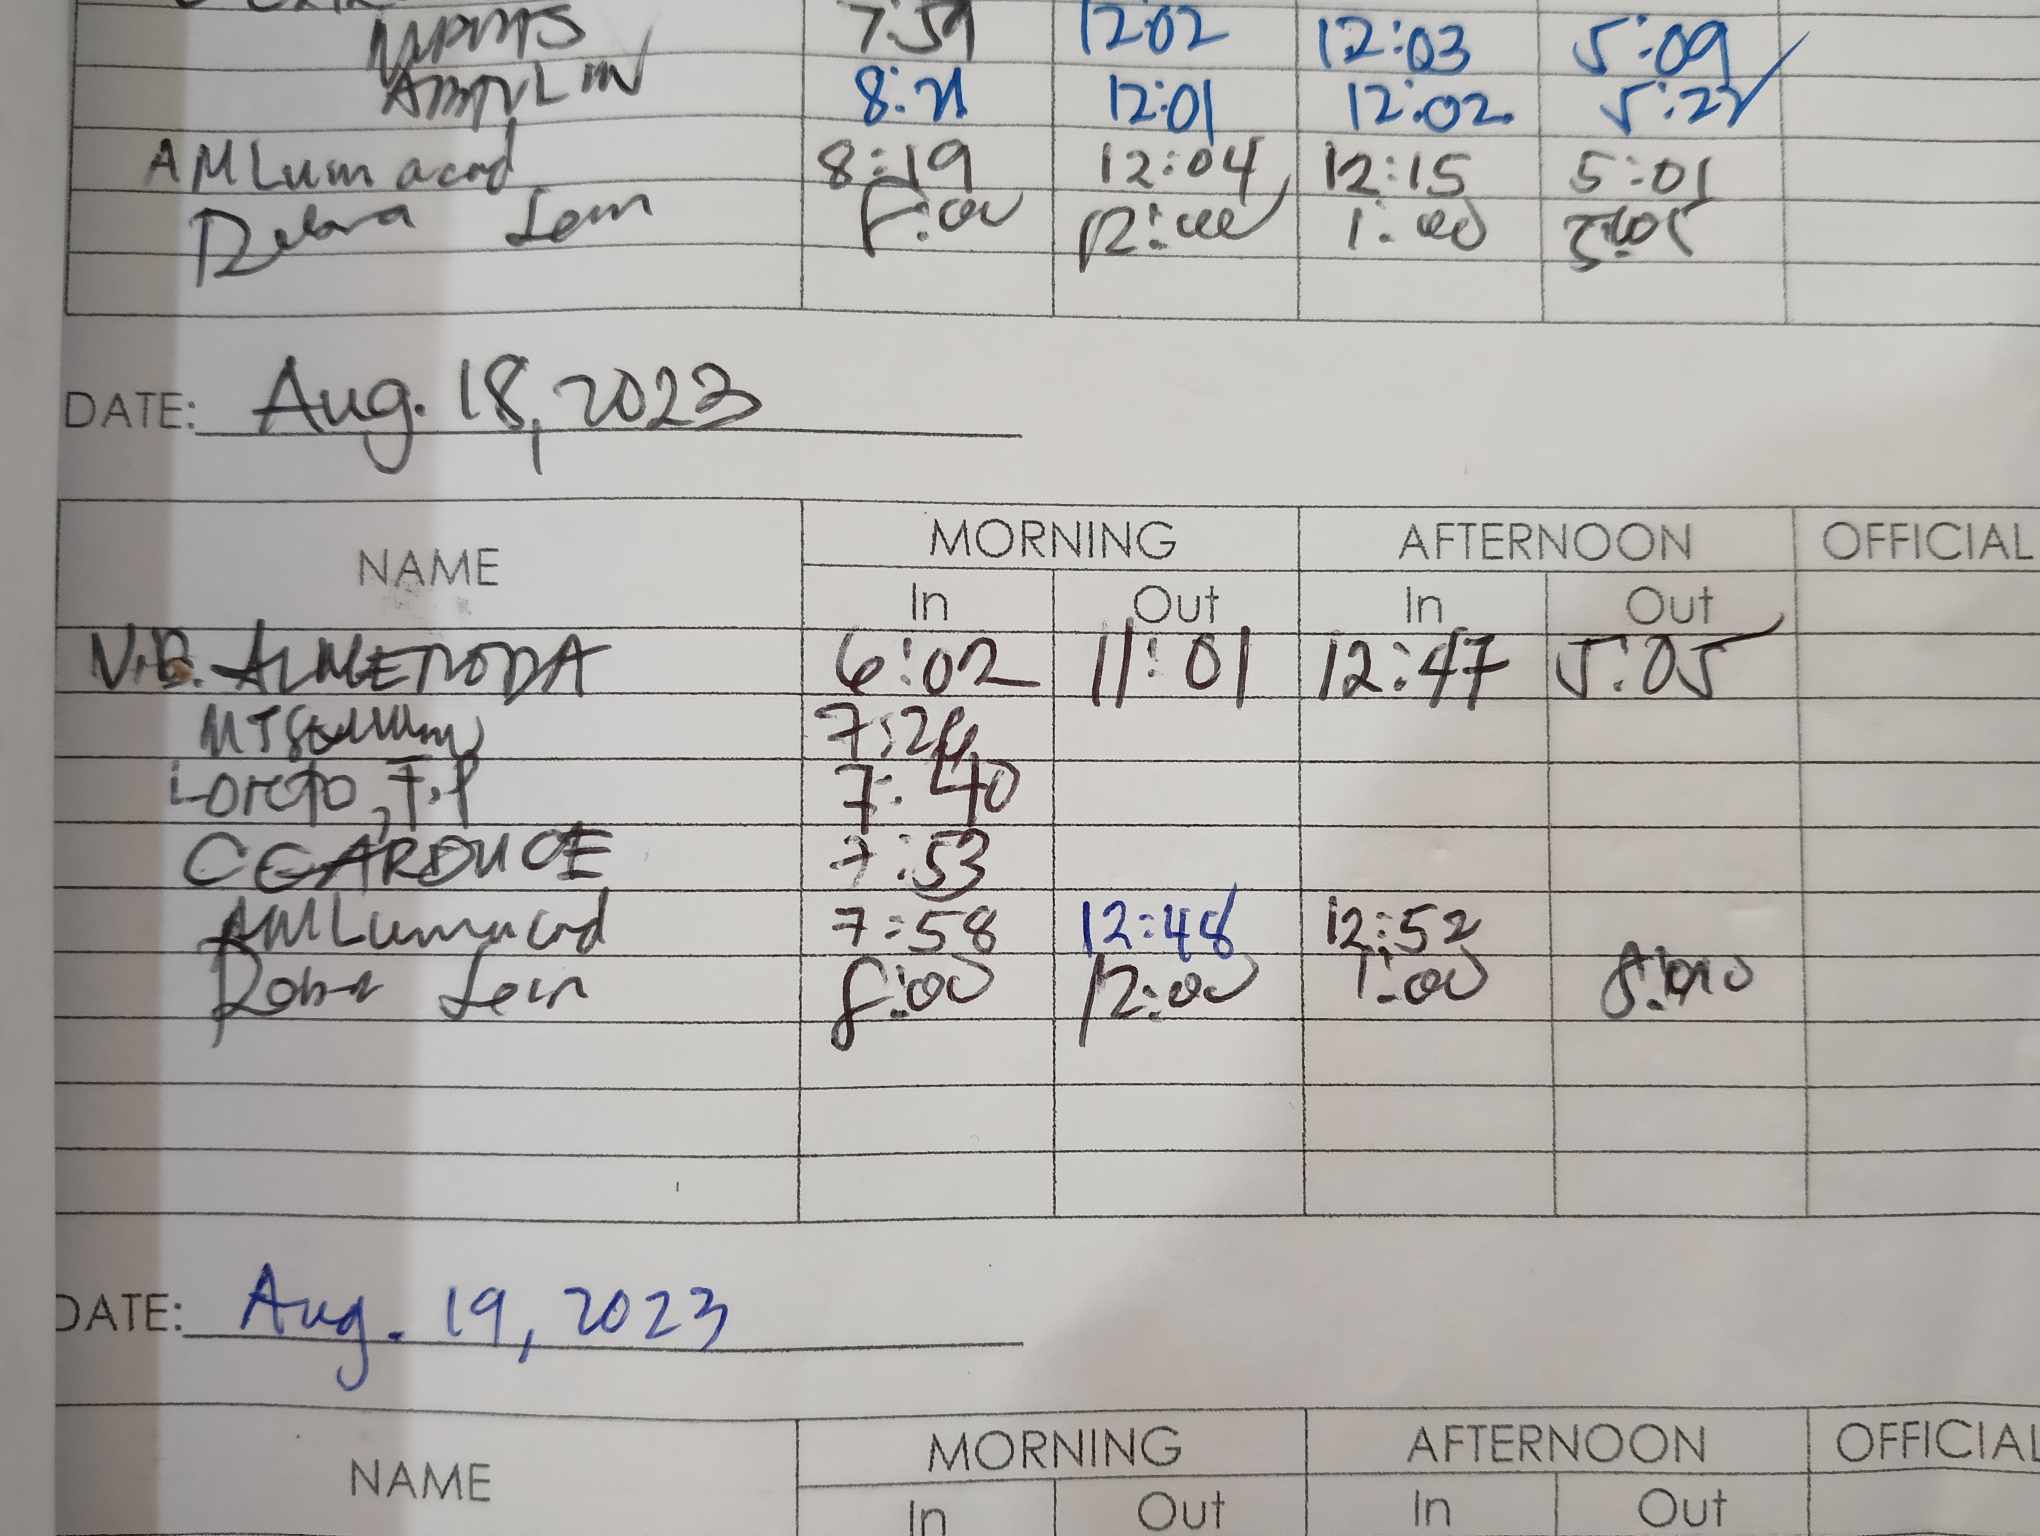 7:59 12:02 12:03 5:09
8:21 12:01 12:02 5:22
AMLumacad 8:19 12:04 12:15 5:01
8:00 12:00 1:00 5:05
DATE: Aug. 18, 2023
NAME MORNING AFTERNOON OFFICIAL
In Out In Out
V.B. ALMENODA 6:02 11:01 12:47 5:05
7:24
Loreto, F.P 7:40
CGARDUCE 7:53
AMLumacad 7:58 12:48 12:52
8:00 12:00 1:00
DATE: Aug. 19, 2023
NAME MORNING AFTERNOON OFFICIAL
In Out In Out